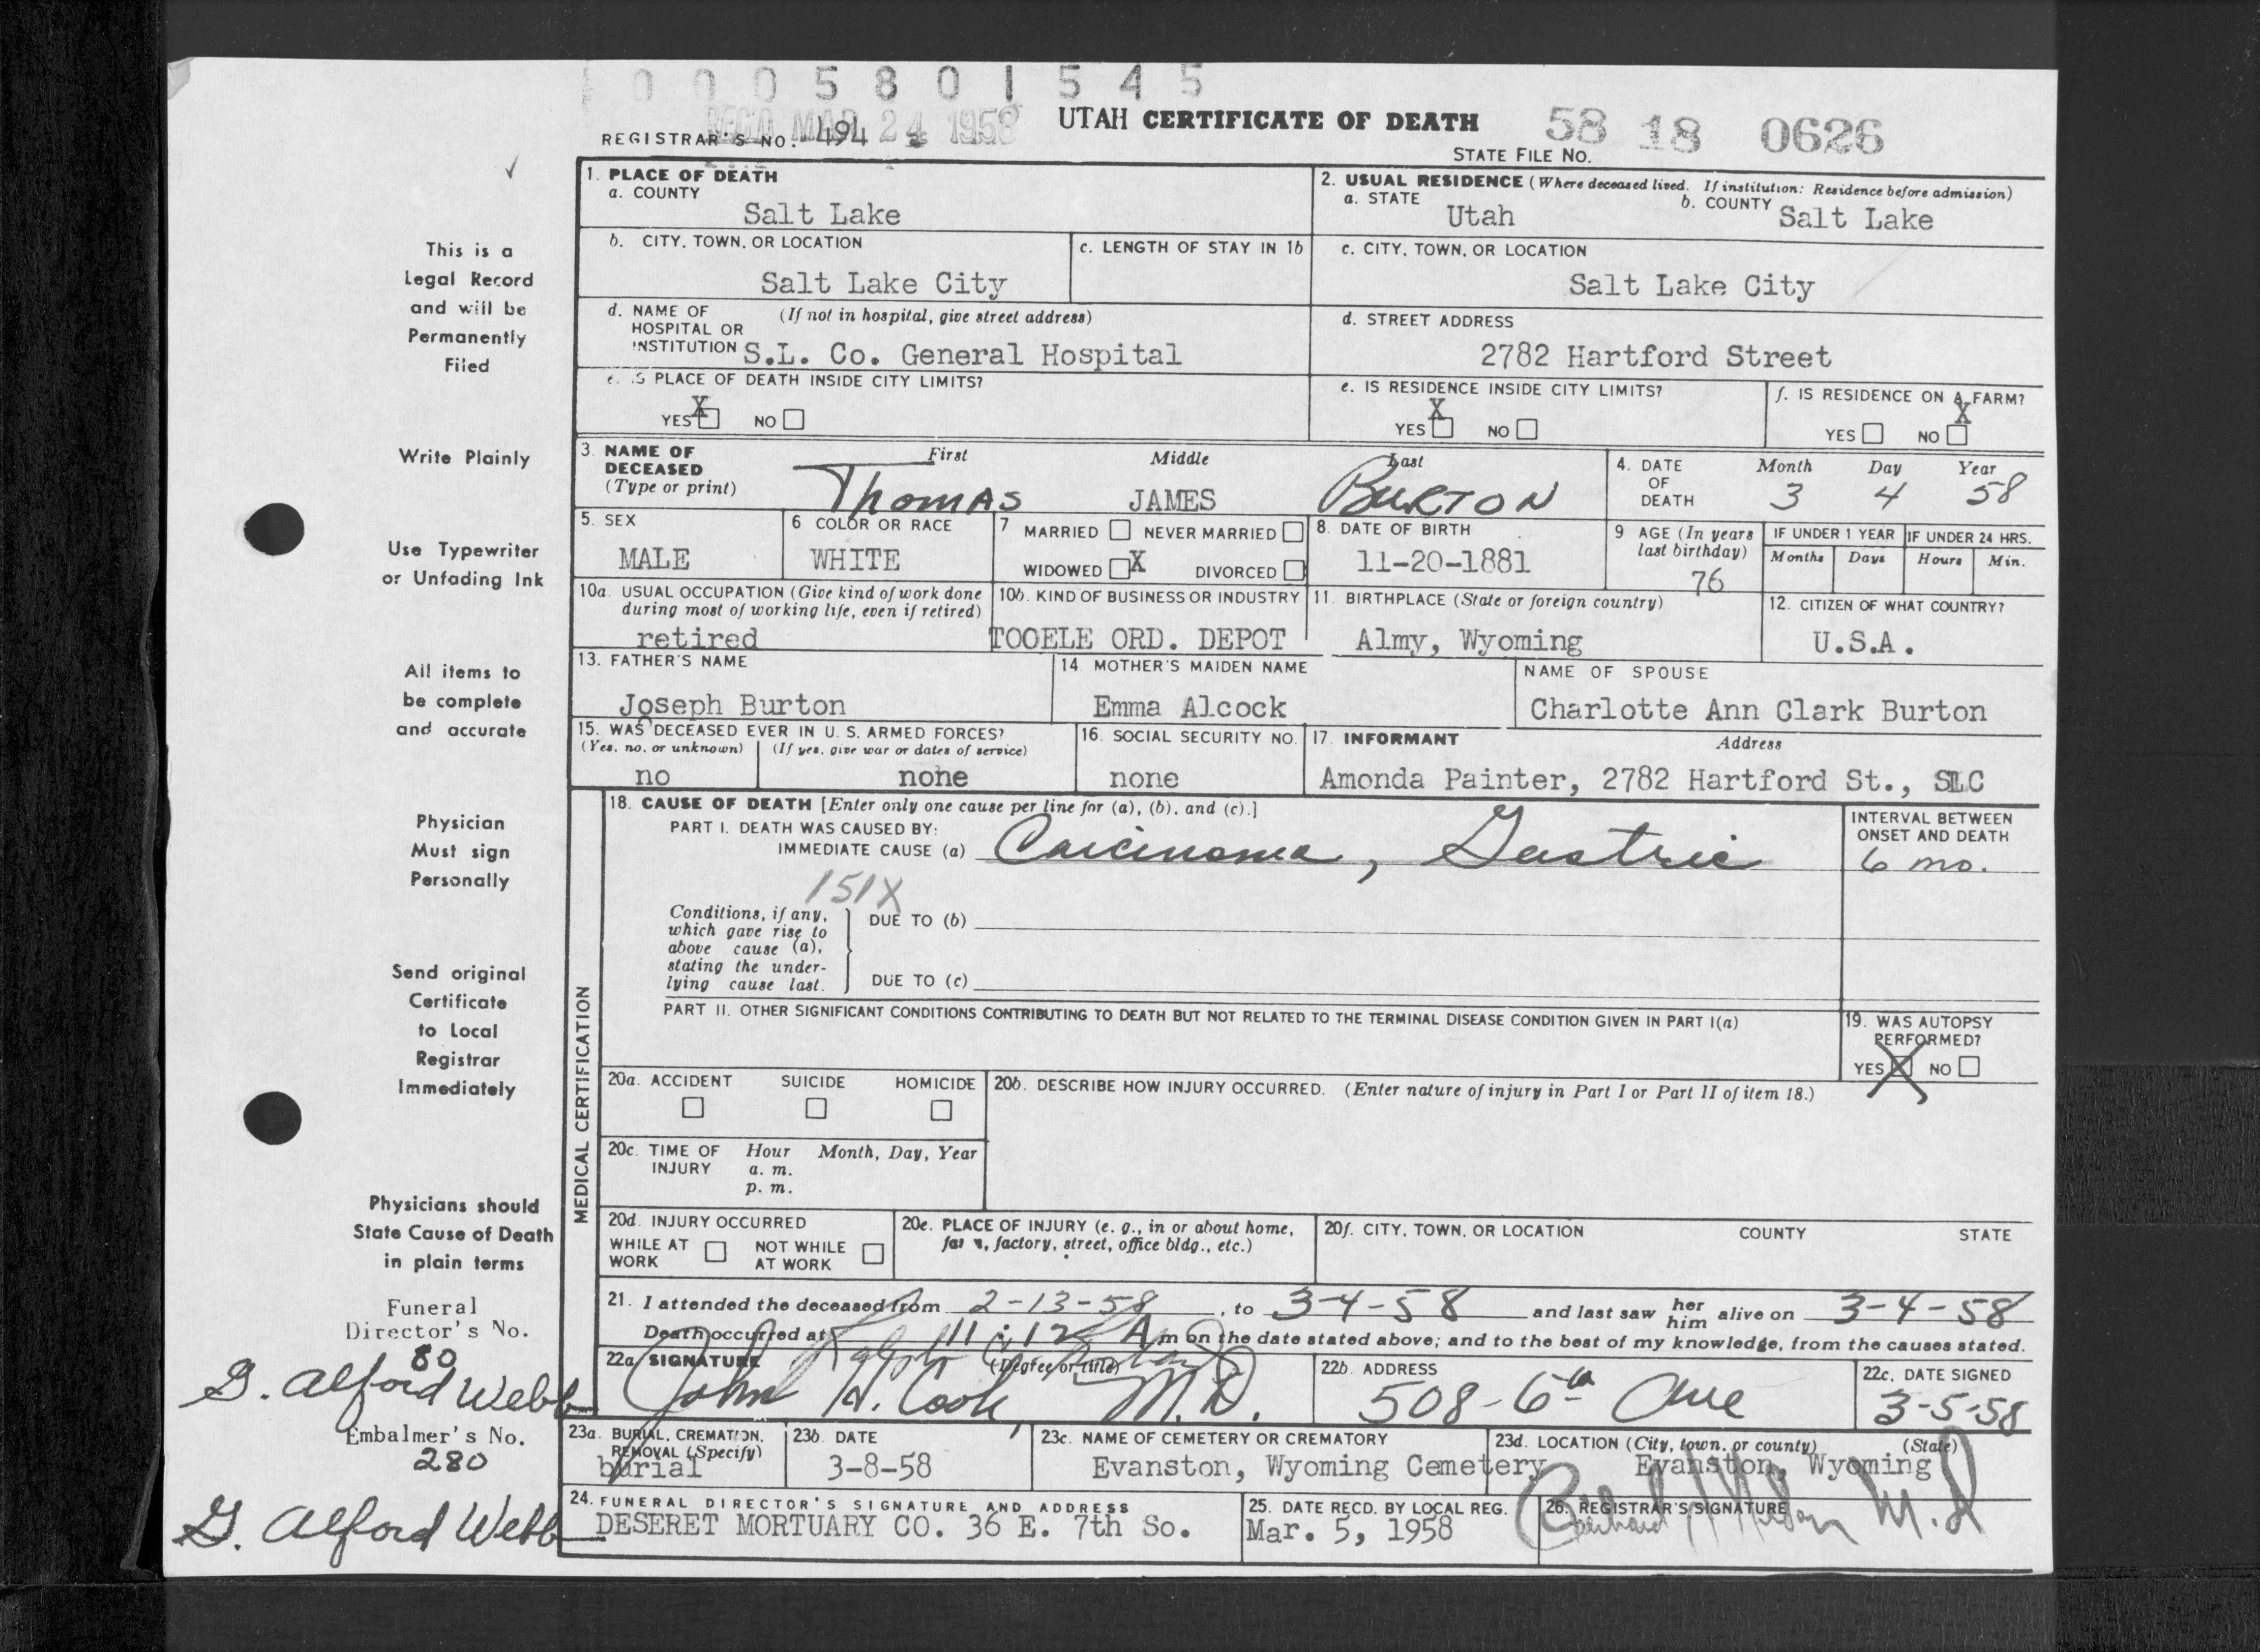 0005801545
REC'D MAR 24 1958
REGISTRAR'S NO. 494
UTAH CERTIFICATE OF DEATH
58 18 0626
STATE FILE NO.
This is a
Legal Record
and will be
Permanently
Filed
Write Plainly
Use Typewriter
or Unfading Ink
All items to
be complete
and accurate
Physician
Must sign
Personally
Send original
Certificate
to Local
Registrar
Immediately
Physicians should
State Cause of Death
in plain terms
Funeral
Director's No.
80
G. Alford Webb
Embalmer's No.
280
G. Alford Webb
1. PLACE OF DEATH
a. COUNTY
Salt Lake
2. USUAL RESIDENCE (Where deceased lived. If institution: Residence before admission)
a. STATE Utah
b. COUNTY Salt Lake
b. CITY, TOWN, OR LOCATION
Salt Lake City
c. LENGTH OF STAY IN 1b
c. CITY, TOWN, OR LOCATION
Salt Lake City
d. NAME OF (If not in hospital, give street address)
HOSPITAL OR
INSTITUTION S.L. Co. General Hospital
d. STREET ADDRESS
2782 Hartford Street
e. IS PLACE OF DEATH INSIDE CITY LIMITS?
YES X NO
e. IS RESIDENCE INSIDE CITY LIMITS?
YES X NO
f. IS RESIDENCE ON A FARM?
YES NO X
3. NAME OF DECEASED (Type or print)
First Middle Last
Thomas JAMES BURTON
4. DATE OF DEATH
Month Day Year
3 4 58
5. SEX
MALE
6 COLOR OR RACE
WHITE
7 MARRIED NEVER MARRIED
WIDOWED X DIVORCED
8. DATE OF BIRTH
11-20-1881
9 AGE (In years last birthday)
76
IF UNDER 1 YEAR
Months Days
IF UNDER 24 HRS.
Hours Min.
10a. USUAL OCCUPATION (Give kind of work done
during most of working life, even if retired)
retired
10b. KIND OF BUSINESS OR INDUSTRY
TOOELE ORD. DEPOT
11. BIRTHPLACE (State or foreign country)
Almy, Wyoming
12. CITIZEN OF WHAT COUNTRY?
U.S.A.
13. FATHER'S NAME
Joseph Burton
14. MOTHER'S MAIDEN NAME
Emma Alcock
NAME OF SPOUSE
Charlotte Ann Clark Burton
15. WAS DECEASED EVER IN U. S. ARMED FORCES?
(Yes, no, or unknown) (If yes, give war or dates of service)
no none
16. SOCIAL SECURITY NO.
none
17. INFORMANT Address
Amonda Painter, 2782 Hartford St., SLC
MEDICAL CERTIFICATION
18. CAUSE OF DEATH [Enter only one cause per line for (a), (b), and (c).]
PART I. DEATH WAS CAUSED BY:
IMMEDIATE CAUSE (a) Carcinoma, Gastric
INTERVAL BETWEEN
ONSET AND DEATH
6 mo.
151X
Conditions, if any,
which gave rise to
above cause (a),
stating the under-
lying cause last.
DUE TO (b)
DUE TO (c)
PART II. OTHER SIGNIFICANT CONDITIONS CONTRIBUTING TO DEATH BUT NOT RELATED TO THE TERMINAL DISEASE CONDITION GIVEN IN PART I(a)
19. WAS AUTOPSY
PERFORMED?
YES X NO
20a. ACCIDENT SUICIDE HOMICIDE
20b. DESCRIBE HOW INJURY OCCURRED. (Enter nature of injury in Part I or Part II of item 18.)
20c. TIME OF INJURY
Hour Month, Day, Year
a. m.
p. m.
20d. INJURY OCCURRED
WHILE AT WORK
NOT WHILE AT WORK
20e. PLACE OF INJURY (e. g., in or about home,
farm, factory, street, office bldg., etc.)
20f. CITY, TOWN, OR LOCATION COUNTY STATE
21. I attended the deceased from 2-13-58, to 3-4-58 and last saw her him alive on 3-4-58
Death occurred at 11:12 A m on the date stated above; and to the best of my knowledge, from the causes stated.
22a. SIGNATURE (Degree or title)
John H. Cook, M.D.
22b. ADDRESS
508-6th Ave
22c. DATE SIGNED
3-5-58
23a. BURIAL, CREMATION,
REMOVAL (Specify)
burial
23b. DATE
3-8-58
23c. NAME OF CEMETERY OR CREMATORY
Evanston, Wyoming Cemetery
23d. LOCATION (City, town, or county) (State)
Evanston, Wyoming
24. FUNERAL DIRECTOR'S SIGNATURE AND ADDRESS
DESERET MORTUARY CO. 36 E. 7th So.
25. DATE RECD. BY LOCAL REG.
Mar. 5, 1958
26. REGISTRAR'S SIGNATURE
M.D